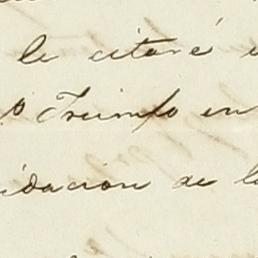 le citaré
Triunfo en
idacion de l